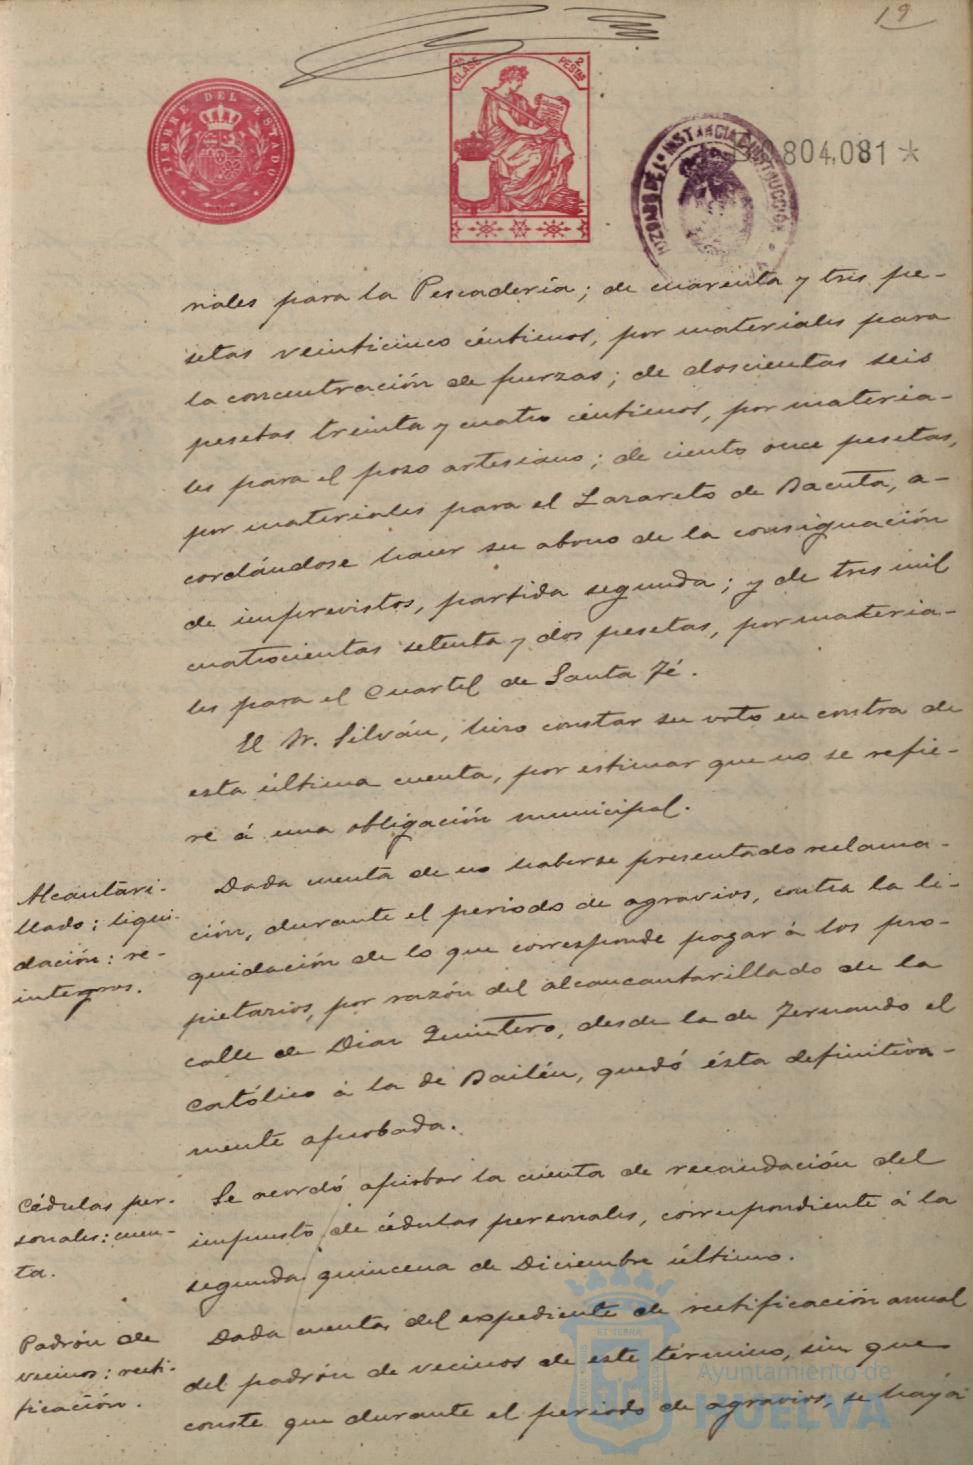 19
TIMBRE DEL ESTADO
CLASE
2
PESTAS
JUZGADO DE 1ª INSTANCIA E INSTRUCCIÓN
804,081 *
riales para la Pescadería; de cuarenta y tres pe-
setas veinticinco céntimos, por materiales para
la concentración de fuerzas; de doscientas seis
pesetas treinta y cuatro céntimos, por materia-
les para el pozo artesiano; de ciento once pesetas,
por materiales para el Lazareto de Bacuta, a-
cordándose hacer su abono de la consignación
de imprevistos, partida segunda; y de tres mil
cuatrocientas setenta y dos pesetas, por materia-
les para el Cuartel de Santa Fé.
El Sr. Silván, hizo constar su voto en contra de
esta última cuenta, por estimar que no se refie-
re á una obligación municipal.
Alcantari-
llado: liqui-
dación: re-
integros.
Dada cuenta de no haberse presentado reclama-
ción, durante el periodo de agravios, contra la li-
quidación de lo que corresponde pagar á los pro-
pietarios, por razón del alcancantarillado de la
calle de Diaz Quintero, desde la de Fernando el
Católico á la de Bailén, quedó ésta definitiva-
mente aprobada.
Cédulas per-
sonales: cuen-
ta.
Se acordó aprobar la cuenta de recaudación del
impuesto de cédulas personales, correspondiente á la
segunda quincena de Diciembre último.
Padrón de
vecinos: recti-
ficación.
Dada cuenta del expediente de rectificación anual
del padrón de vecinos de este término, sin que
conste que durante el periodo de agravios, se haya
Ayuntamiento de
HUELVA